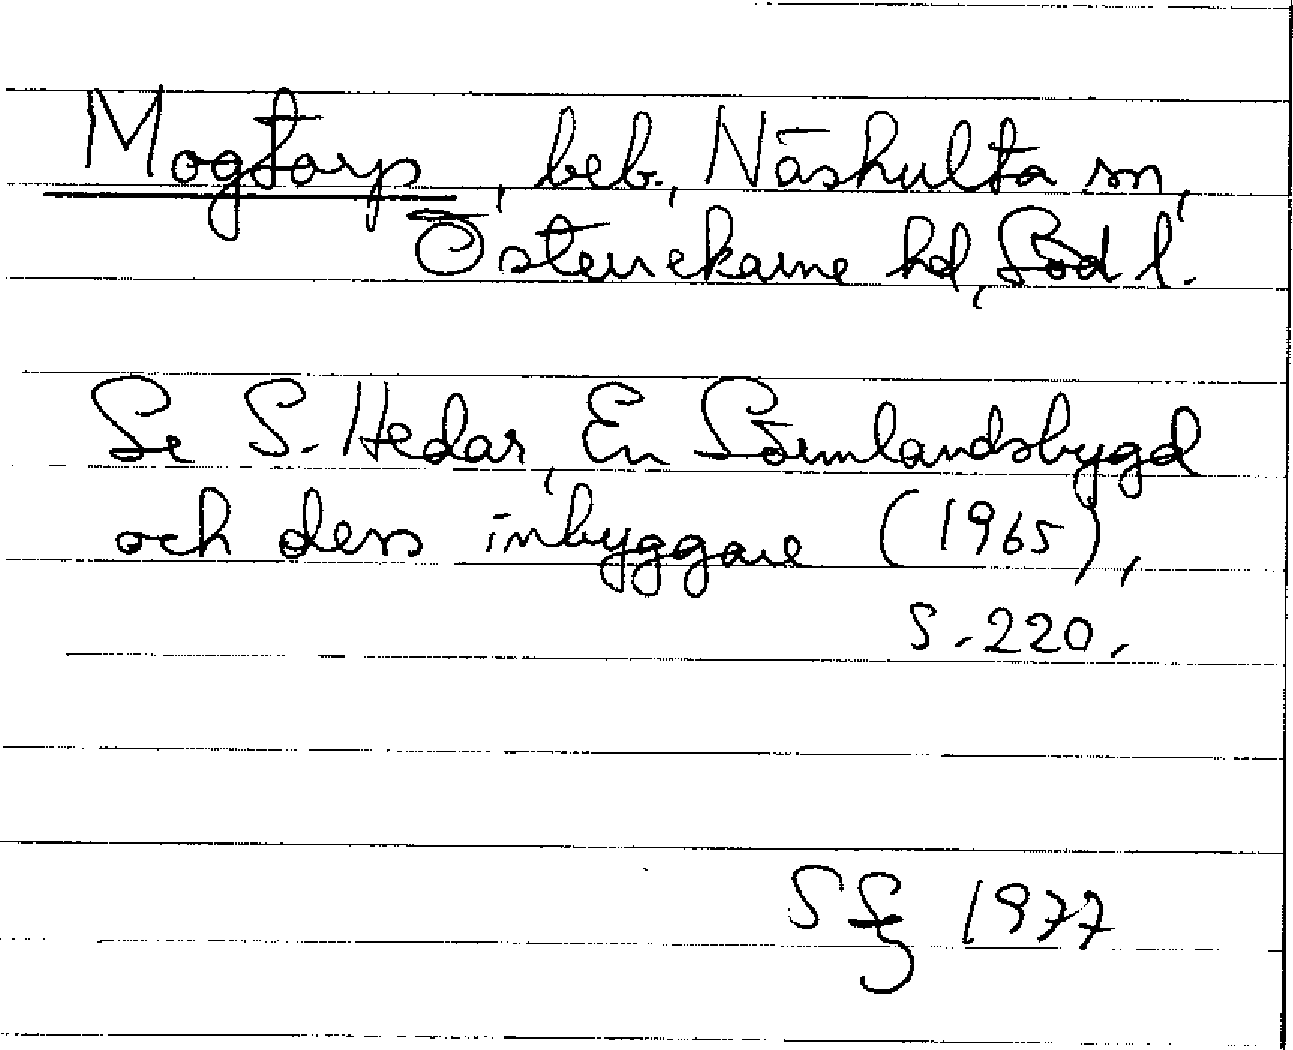 Mogtorp, beb., Näshulta sn,
Österrekarne hd, Söd l.
Se S. Hedar, En Sörmlandsbygd
och dess inbyggare (1965),
s. 220.
1977